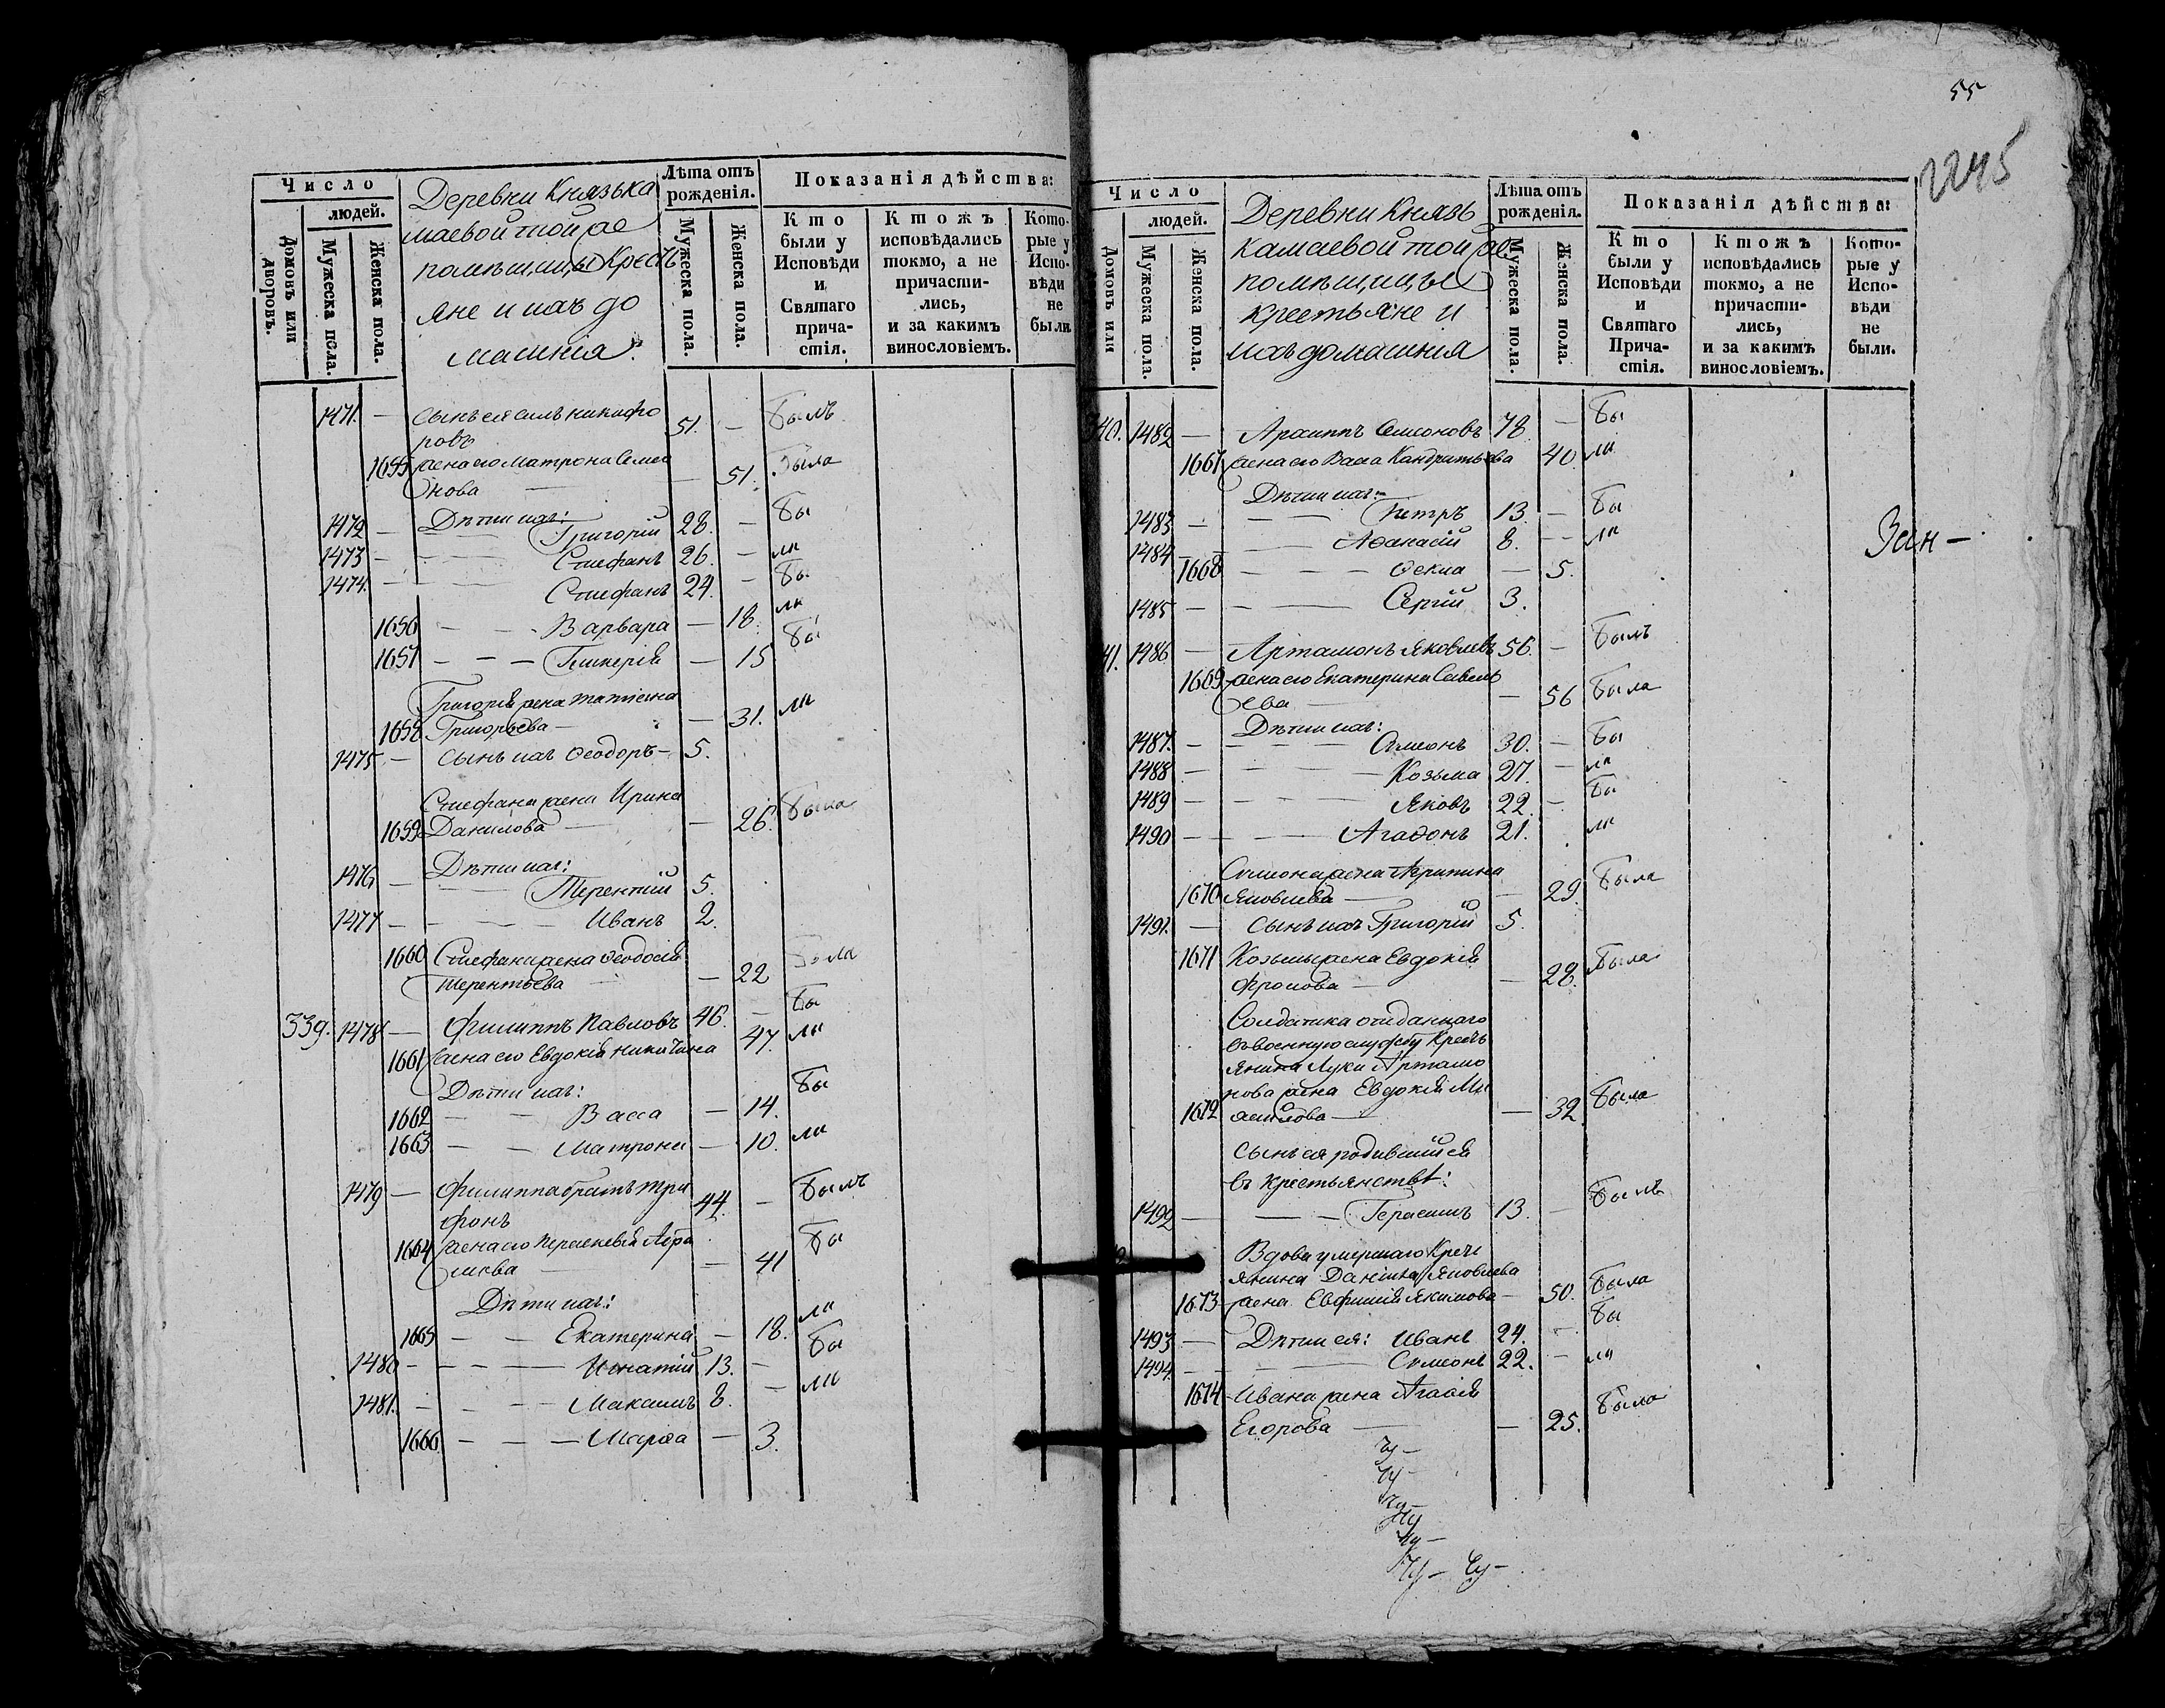 Число
людей.
Домовъ или дворовъ.
Мужеска пола.
Женска пола.
Деревни Князька
маевой той же
помѣщицы Кресть
яне и ихъ до
машнія:
Лѣта отъ рожденія.
Мужеска пола.
Женска пола.
Показанія дѣйства:
Кто были у Исповѣди и Святаго причастія.
Ктожъ исповѣдались токмо, а не причастились, и за какимъ винословіемъ.
Которые у Исповѣди не были.
1471. — сынъ ея Никифо 51. — Былъ
ровъ
1655 жена его Матрона Семео — 51. Была
нова
Дѣти ихъ:
1472 — Григорій 28. — Бы
1473 — Стефанъ 26. — ли
1474. — Стефанъ 24. — Бы
1656 — — Варвара — 18. ли
1657 — — — Гликерія — 15 Бы
Григорія жена Татіана
1658 Григорьева — — 31. ли
1475 — сынъ ихъ Ѳеодоръ — 5.
Стефана жена Ирина
1659 Данилова — — 26. Была
Дѣти ихъ:
1476 — Терентий 5.
1477 — — — — Иванъ 2.
1660 Стефана жена Ѳеодосія
Терентьева — 22 Была
339. 1478 — Филиппъ Павловъ 46. — Бы
1661 жена его Евдокія Никитина 47. ли
Дѣти ихъ:
1662 — — Васса — 14. Бы
1663 — — Матрона — 10. ли
1479 — Филиппа братъ Три 44. — Былъ
фонъ
1664 жена его Параскевія Абра — 41 Бы
мова
Дѣти ихъ:
1665 — — Екатерина — 18. ли
1480 — — — — Игнатій 13. — Бы
1481. — — — Максимъ 8. — ли
1666 — — — Марѳа — 3.
55
2245
Число
людей.
Домовъ или
Мужеска пола.
Женска пола.
Деревни Князь
камаевой той же
помѣщицы
крестьяне и
ихъ домашнія
Лѣта отъ рожденія.
Мужеска пола.
Женска пола.
Показанія дѣйства:
Кто были у Исповѣди и Святаго Причастія.
Ктожъ исповѣдались токмо, а не причастились, и за какимъ винословіемъ.
Которые у Исповѣди не были.
340. 1482 — Архиппъ Симеоновъ 78. — Бы
1667 жена его Васса Кандратьева 40. ли
Дѣти ихъ:
1483 — — Петръ 13. — Бы
1484 — — Аѳанасій 8. — — ли
1668 — — — Ѳекла — 5.
1485 — — — Сергій 3.
41. 1486 — Артамонъ Яковлевъ 56. — Былъ
1669 жена его Екатерина Савель
ева — — 56 Была
Дѣти ихъ:
1487. — — — — Симеонъ 30. — Бы
1488 — — Козьма 27. — ли
1489 — — — — Яковъ 22. — Бы
1490 — — — Агаѳонъ 21. ли
Симеона жена Агрипина
1670 Яковлева — — 29. Была
1491. — сынъ ихъ Григорій 5.
1671 Козьмы жена Евдокія
Фролова — — 28. Была
Солдатка отданнаго
въ военную службу Кресть
янина Луки Артамо
нова жена Евдокія Ми
1672 хайлова — — 32 Была
сынъ ея родившійся
въ крестьянствѣ:
1492 — — — Герасимъ 13. — Былъ
Вдова умершаго Крест
янина Данила Яковлева
1673 жена Евфимія Якимова — 50. Была
1493 — Дѣти ея: Иванъ 24. — Бы
1494. — — — — Симеонъ 22. — ли
1674 Ивана жена Агаѳія
Егорова — — 25. Была